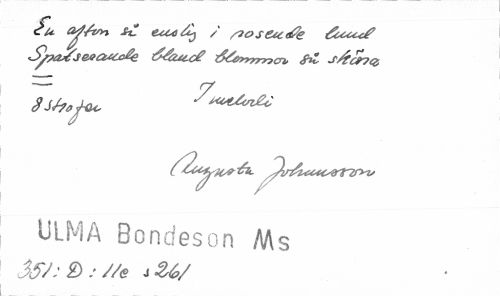 En afton så enslig i rosende lund
Spatserande bland blommor så sköna
8 strofer
1 melodi
Augusta Johansson
ULMA Bondeson Ms
351:D:11e s 261